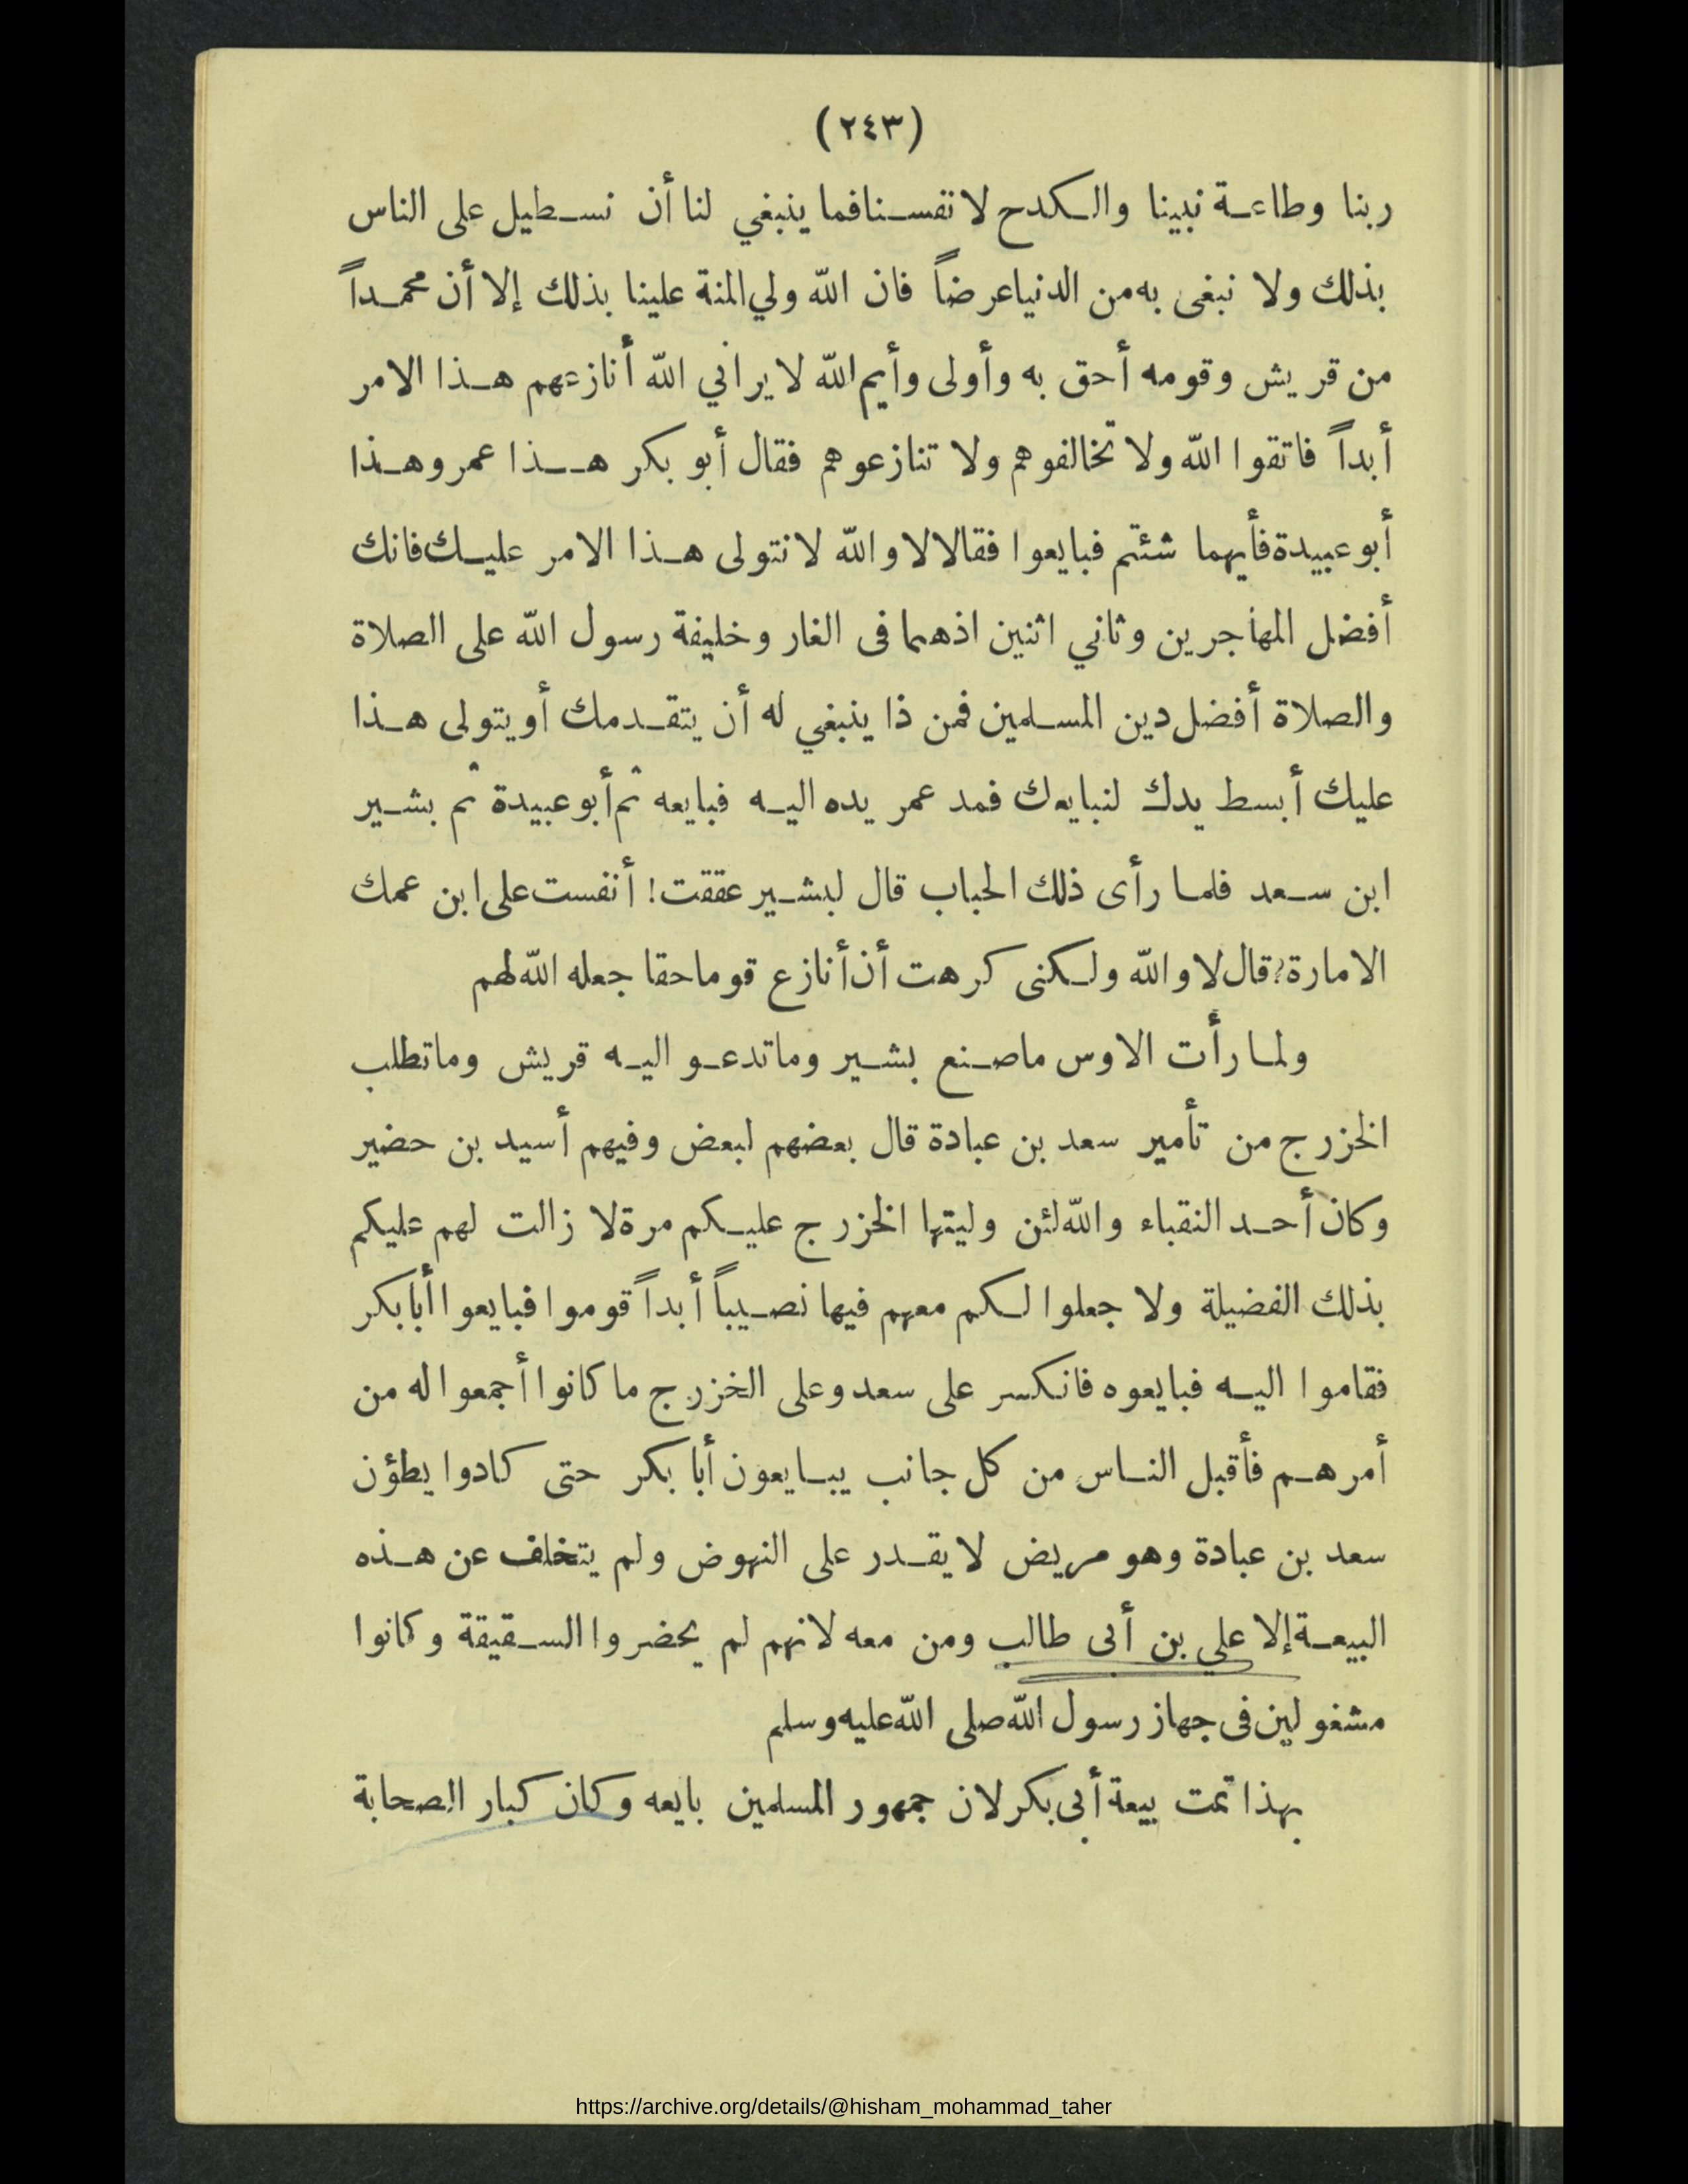 (٢٤٣)
ربنا وطاعة نبينا والكدح لانفسنا فما ينبغي لنا أن نسطيل على الناس
بذلك ولا نبغى به من الدنيا عرضاً فان الله ولي المنة علينا بذلك إلا أن محمداً
من قريش وقومه أحق به وأولى وأيم الله لا يراني الله أنازعهم هذا الامر
أبداً فاتقوا الله ولا تخالفوهم ولا تنازعوهم فقال أبو بكر هذا عمر وهذا
أبو عبيدة فأيهما شئتم فبايعوا فقالا لا والله لا نتولى هذا الامر عليك فانك
أفضل المهاجرين وثاني اثنين اذهما فى الغار وخليفة رسول الله على الصلاة
والصلاة أفضل دين المسلمين فمن ذا ينبغي له أن يتقدمك أو يتولى هذا
عليك أبسط يدك لنبايعك فمد عمر يده اليه فبايعه ثم أبو عبيدة ثم بشير
ابن سعد فلما رأى ذلك الحباب قال لبشير عققت! أنفست على ابن عمك
الامارة؟ قال لا والله ولكنى كرهت أن أنازع قوما حقا جعله الله لهم
ولما رأت الاوس ما صنع بشير وما تدعو اليه قريش وما تطلب
الخزرج من تأمير سعد بن عبادة قال بعضهم لبعض وفيهم أسيد بن حضير
وكان أحد النقباء والله لئن وليتها الخزرج عليكم مرة لا زالت لهم عليكم
بذلك الفضيلة ولا جعلوا لكم معهم فيها نصيباً أبداً قوموا فبايعوا أبا بكر
فقاموا اليه فبايعوه فانكسر على سعد وعلى الخزرج ما كانوا أجمعوا له من
أمرهم فأقبل الناس من كل جانب يبايعون أبا بكر حتى كادوا يطؤن
سعد بن عبادة وهو مريض لا يقدر على النهوض ولم يتخلف عن هذه
البيعة إلا علي بن أبى طالب ومن معه لانهم لم يحضروا السقيقة وكانوا
مشغولين فى جهاز رسول الله صلى الله عليه وسلم
بهذا تمت بيعة أبى بكر لان جمهور المسلمين بايعه وكان كبار الصحابة
https://archive.org/details/@hisham_mohammad_taher